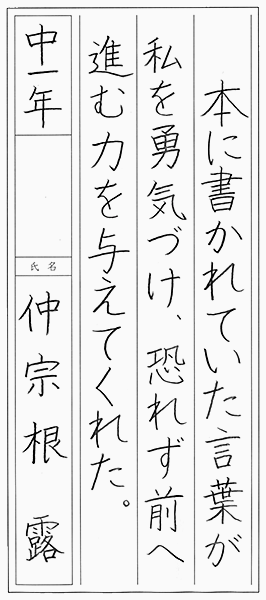 本に書かれていた言葉が
私を勇気づけ、恐れず前へ
進む力を与えてくれた。
中一年
氏名
仲宗根 露